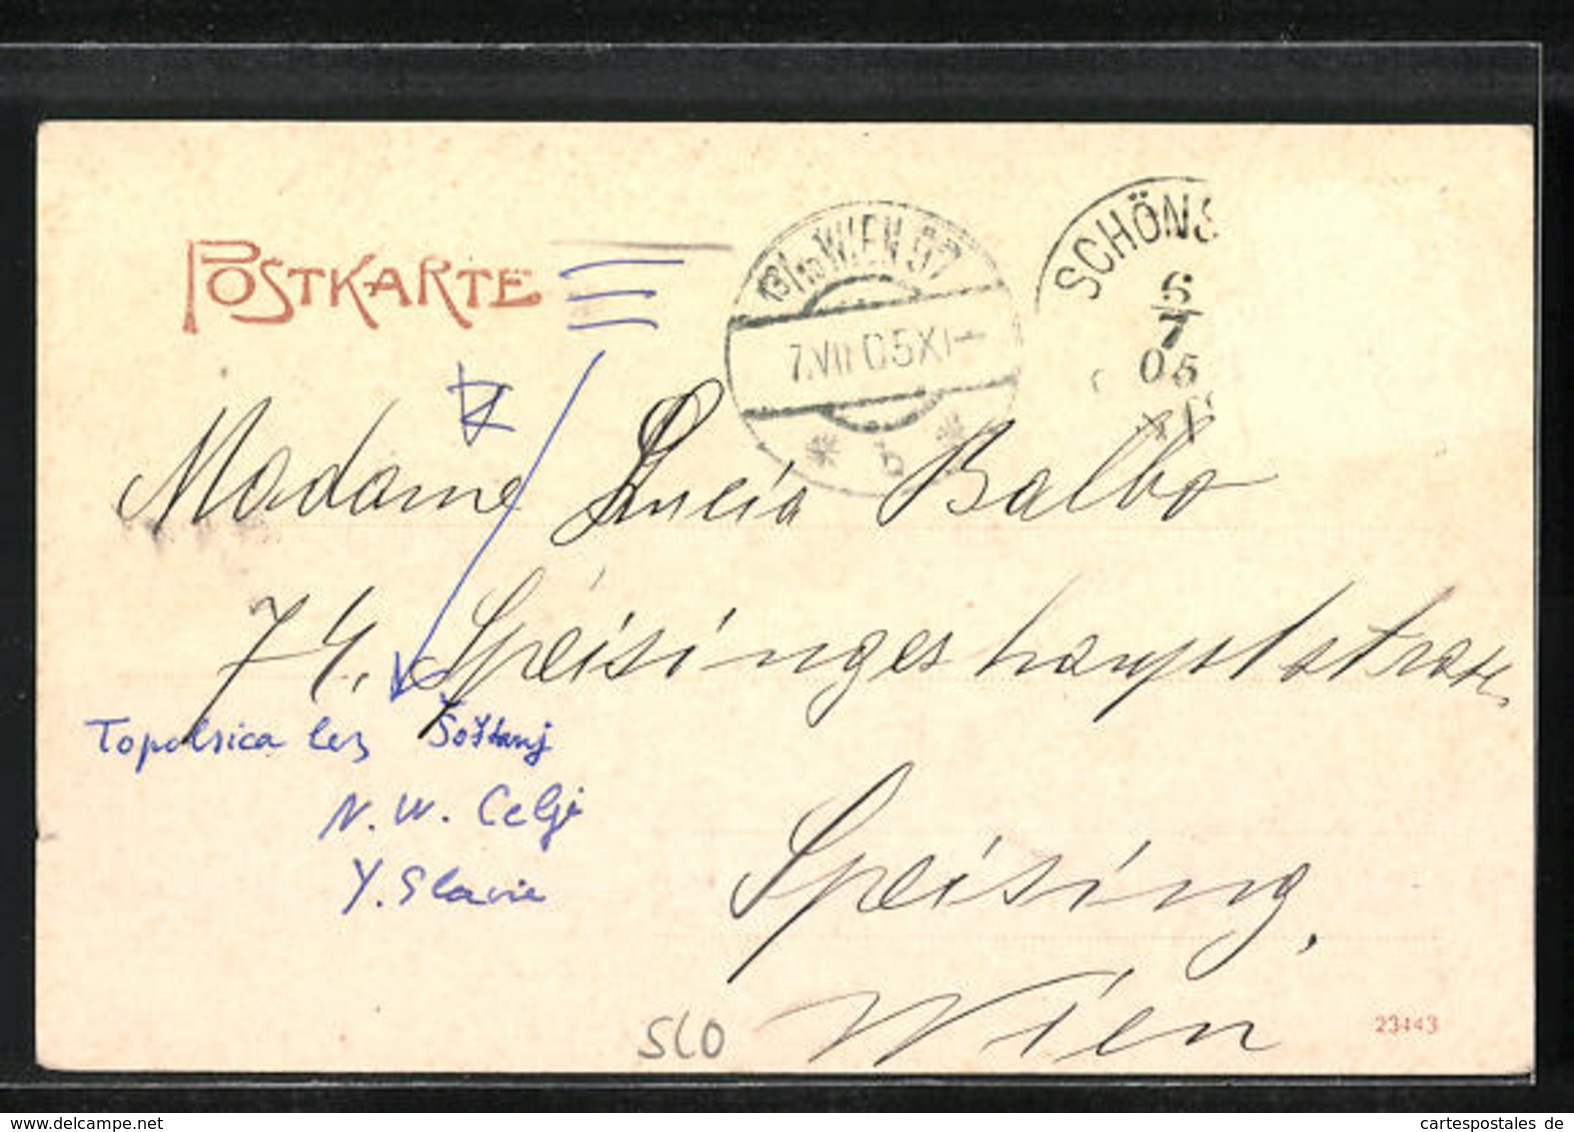 POSTKARTE
13/1 WIEN 97
7.VII 05 XI
* b *
SCHÖNS
6
7
05
Madame Lucia Balbo
74. Speisinger hauptstrasse
Topolsica bez Šoštanj
N. W. Celje
Y. Slavie
Speising,
Wien
SLO
23443
cartespostales de
www.delcampe.net